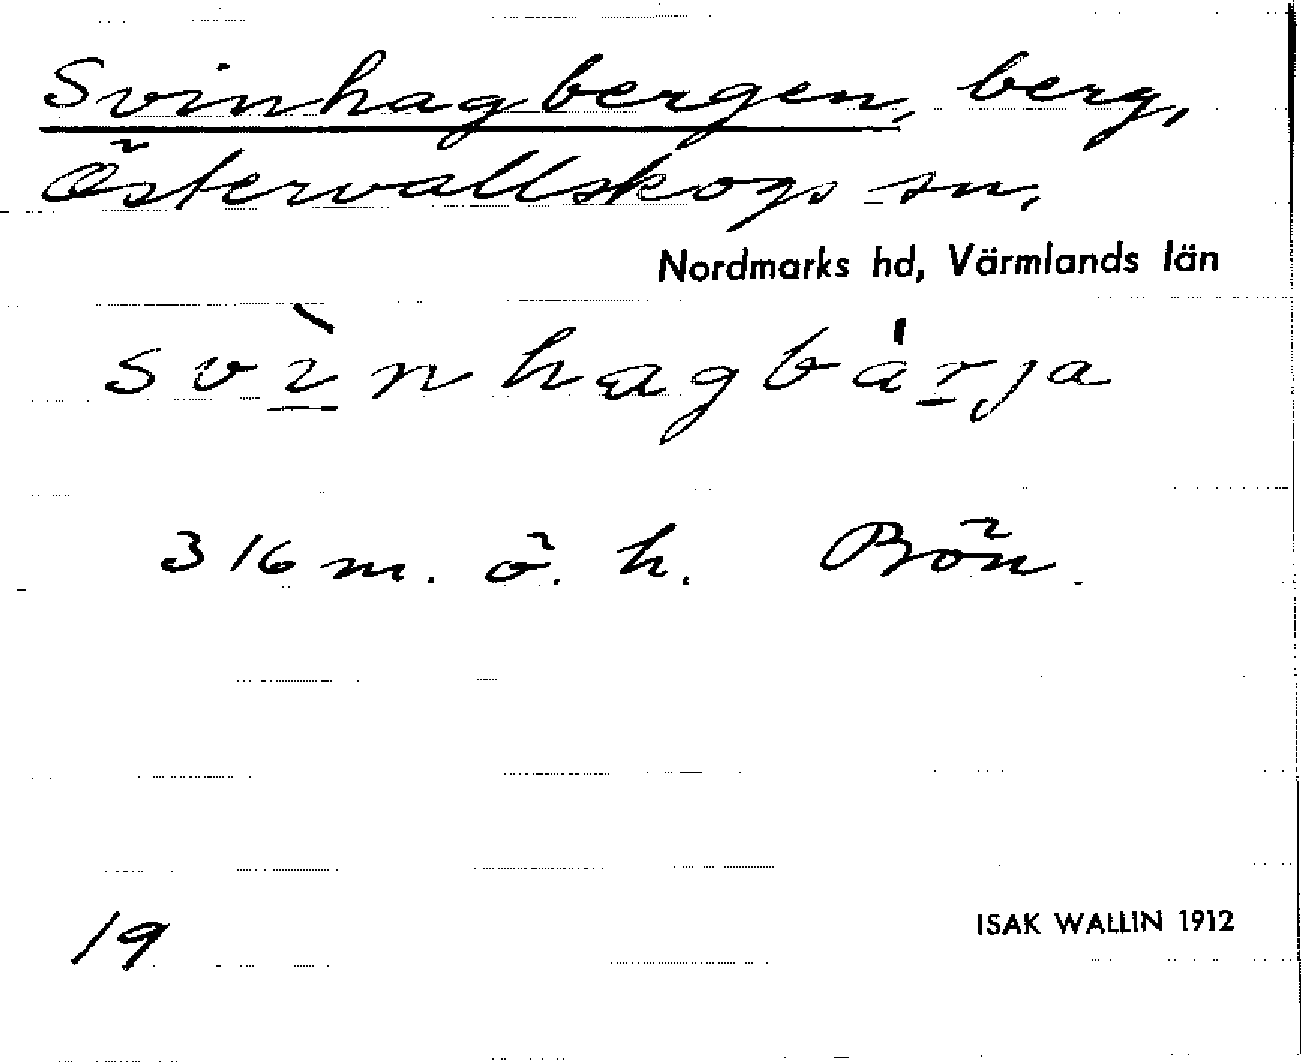 Svinhagbergen, berg,
Östervallskogs sn,
Nordmarks hd, Värmlands län
svìnhagbárja
316 m. ö. h. Bön.
19 ISAK WALLIN 1912